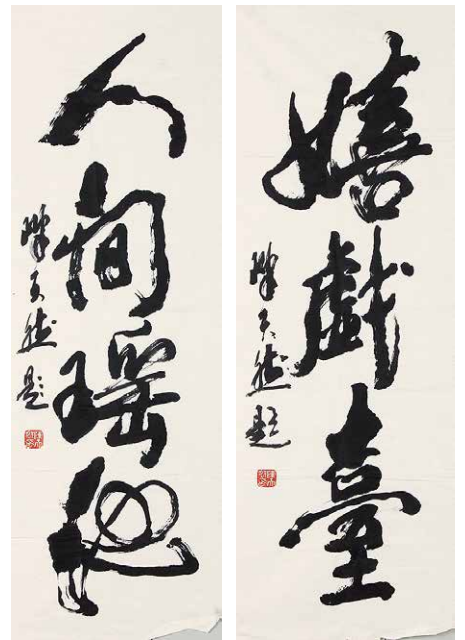 嬉戲臺
陳天然題
人間瑶池
陳天然題